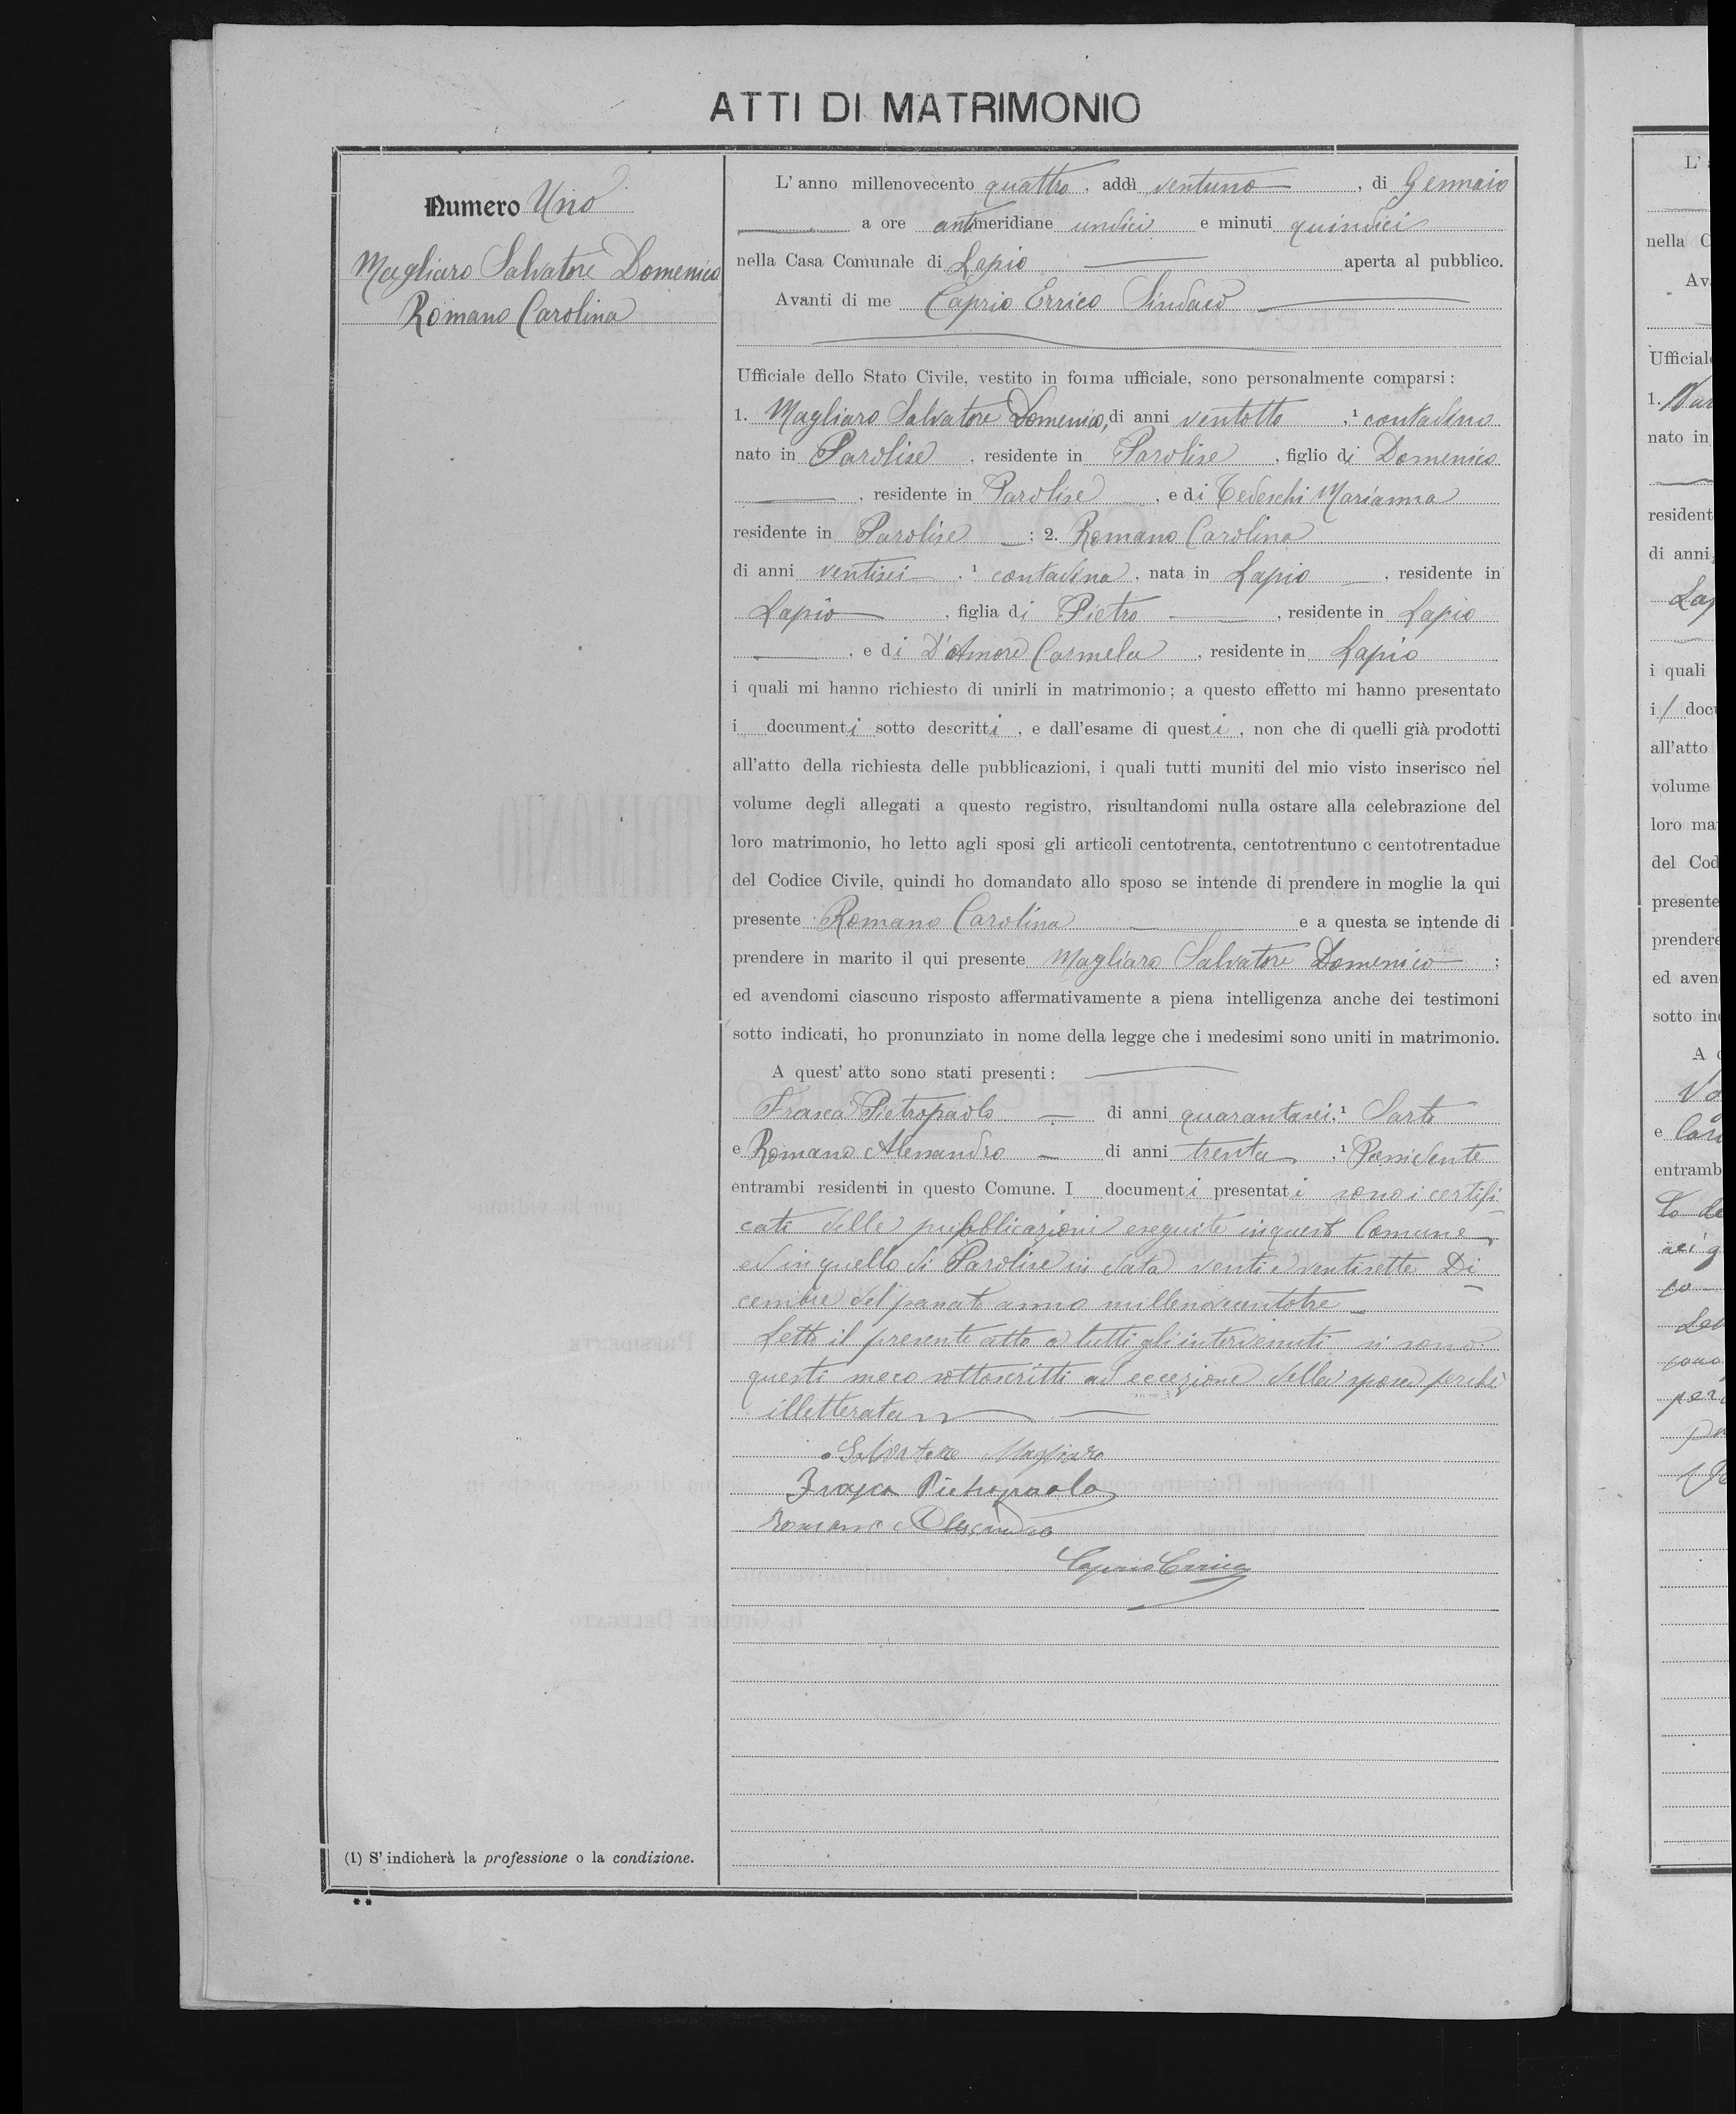 ATTI DI MATRIMONIO
Numero Uno
Magliaro Salvatore Domenico
Romano Carolina
L'anno millenovecento quattro, addì ventuno, di Gennaio
a ore antimeridiane undici e minuti quindici
nella Casa Comunale di Lapio aperta al pubblico.
Avanti di me Caprio Errico Sindaco
Ufficiale dello Stato Civile, vestito in forma ufficiale, sono personalmente comparsi:
1. Magliaro Salvatore Domenico, di anni ventotto, ¹ contadino
nato in Parolise, residente in Parolise, figlio di Domenico
, residente in Parolise, e di Tedeschi Marianna
residente in Parolise; 2. Romano Carolina
di anni ventisei, ¹ contadina, nata in Lapio, residente in
Lapio, figlia di Pietro, residente in Lapio
, e di D'Amore Carmela, residente in Lapio
i quali mi hanno richiesto di unirli in matrimonio; a questo effetto mi hanno presentato
i documenti sotto descritti, e dall'esame di questi, non che di quelli già prodotti
all'atto della richiesta delle pubblicazioni, i quali tutti muniti del mio visto inserisco nel
volume degli allegati a questo registro, risultandomi nulla ostare alla celebrazione del
loro matrimonio, ho letto agli sposi gli articoli centotrenta, centotrentuno c centotrentadue
del Codice Civile, quindi ho domandato allo sposo se intende di prendere in moglie la qui
presente Romano Carolina e a questa se intende di
prendere in marito il qui presente Magliaro Salvatore Domenico;
ed avendomi ciascuno risposto affermativamente a piena intelligenza anche dei testimoni
sotto indicati, ho pronunziato in nome della legge che i medesimi sono uniti in matrimonio.
A quest'atto sono stati presenti:
Frasca Pietropaolo di anni quarantasei, ¹ Sarto
e Romano Alessandro di anni trenta, ¹ Possidente
entrambi residenti in questo Comune. I documenti presentati sono i certifi
cati delle pubblicazioni eseguite in questo Comune
ed in quello di Parolise in data venti e ventisette Di
cembre del passato anno millenovecentotre
Letto il presente atto a tutti gli intervenuti si sono
questi meco sottoscritti ad eccezione della sposa perché
illetterata
Salvatore Magliaro
Frasca Pietropaolo
Romano Alessandro
Caprio Errico
(1) S'indicherà la professione o la condizione.